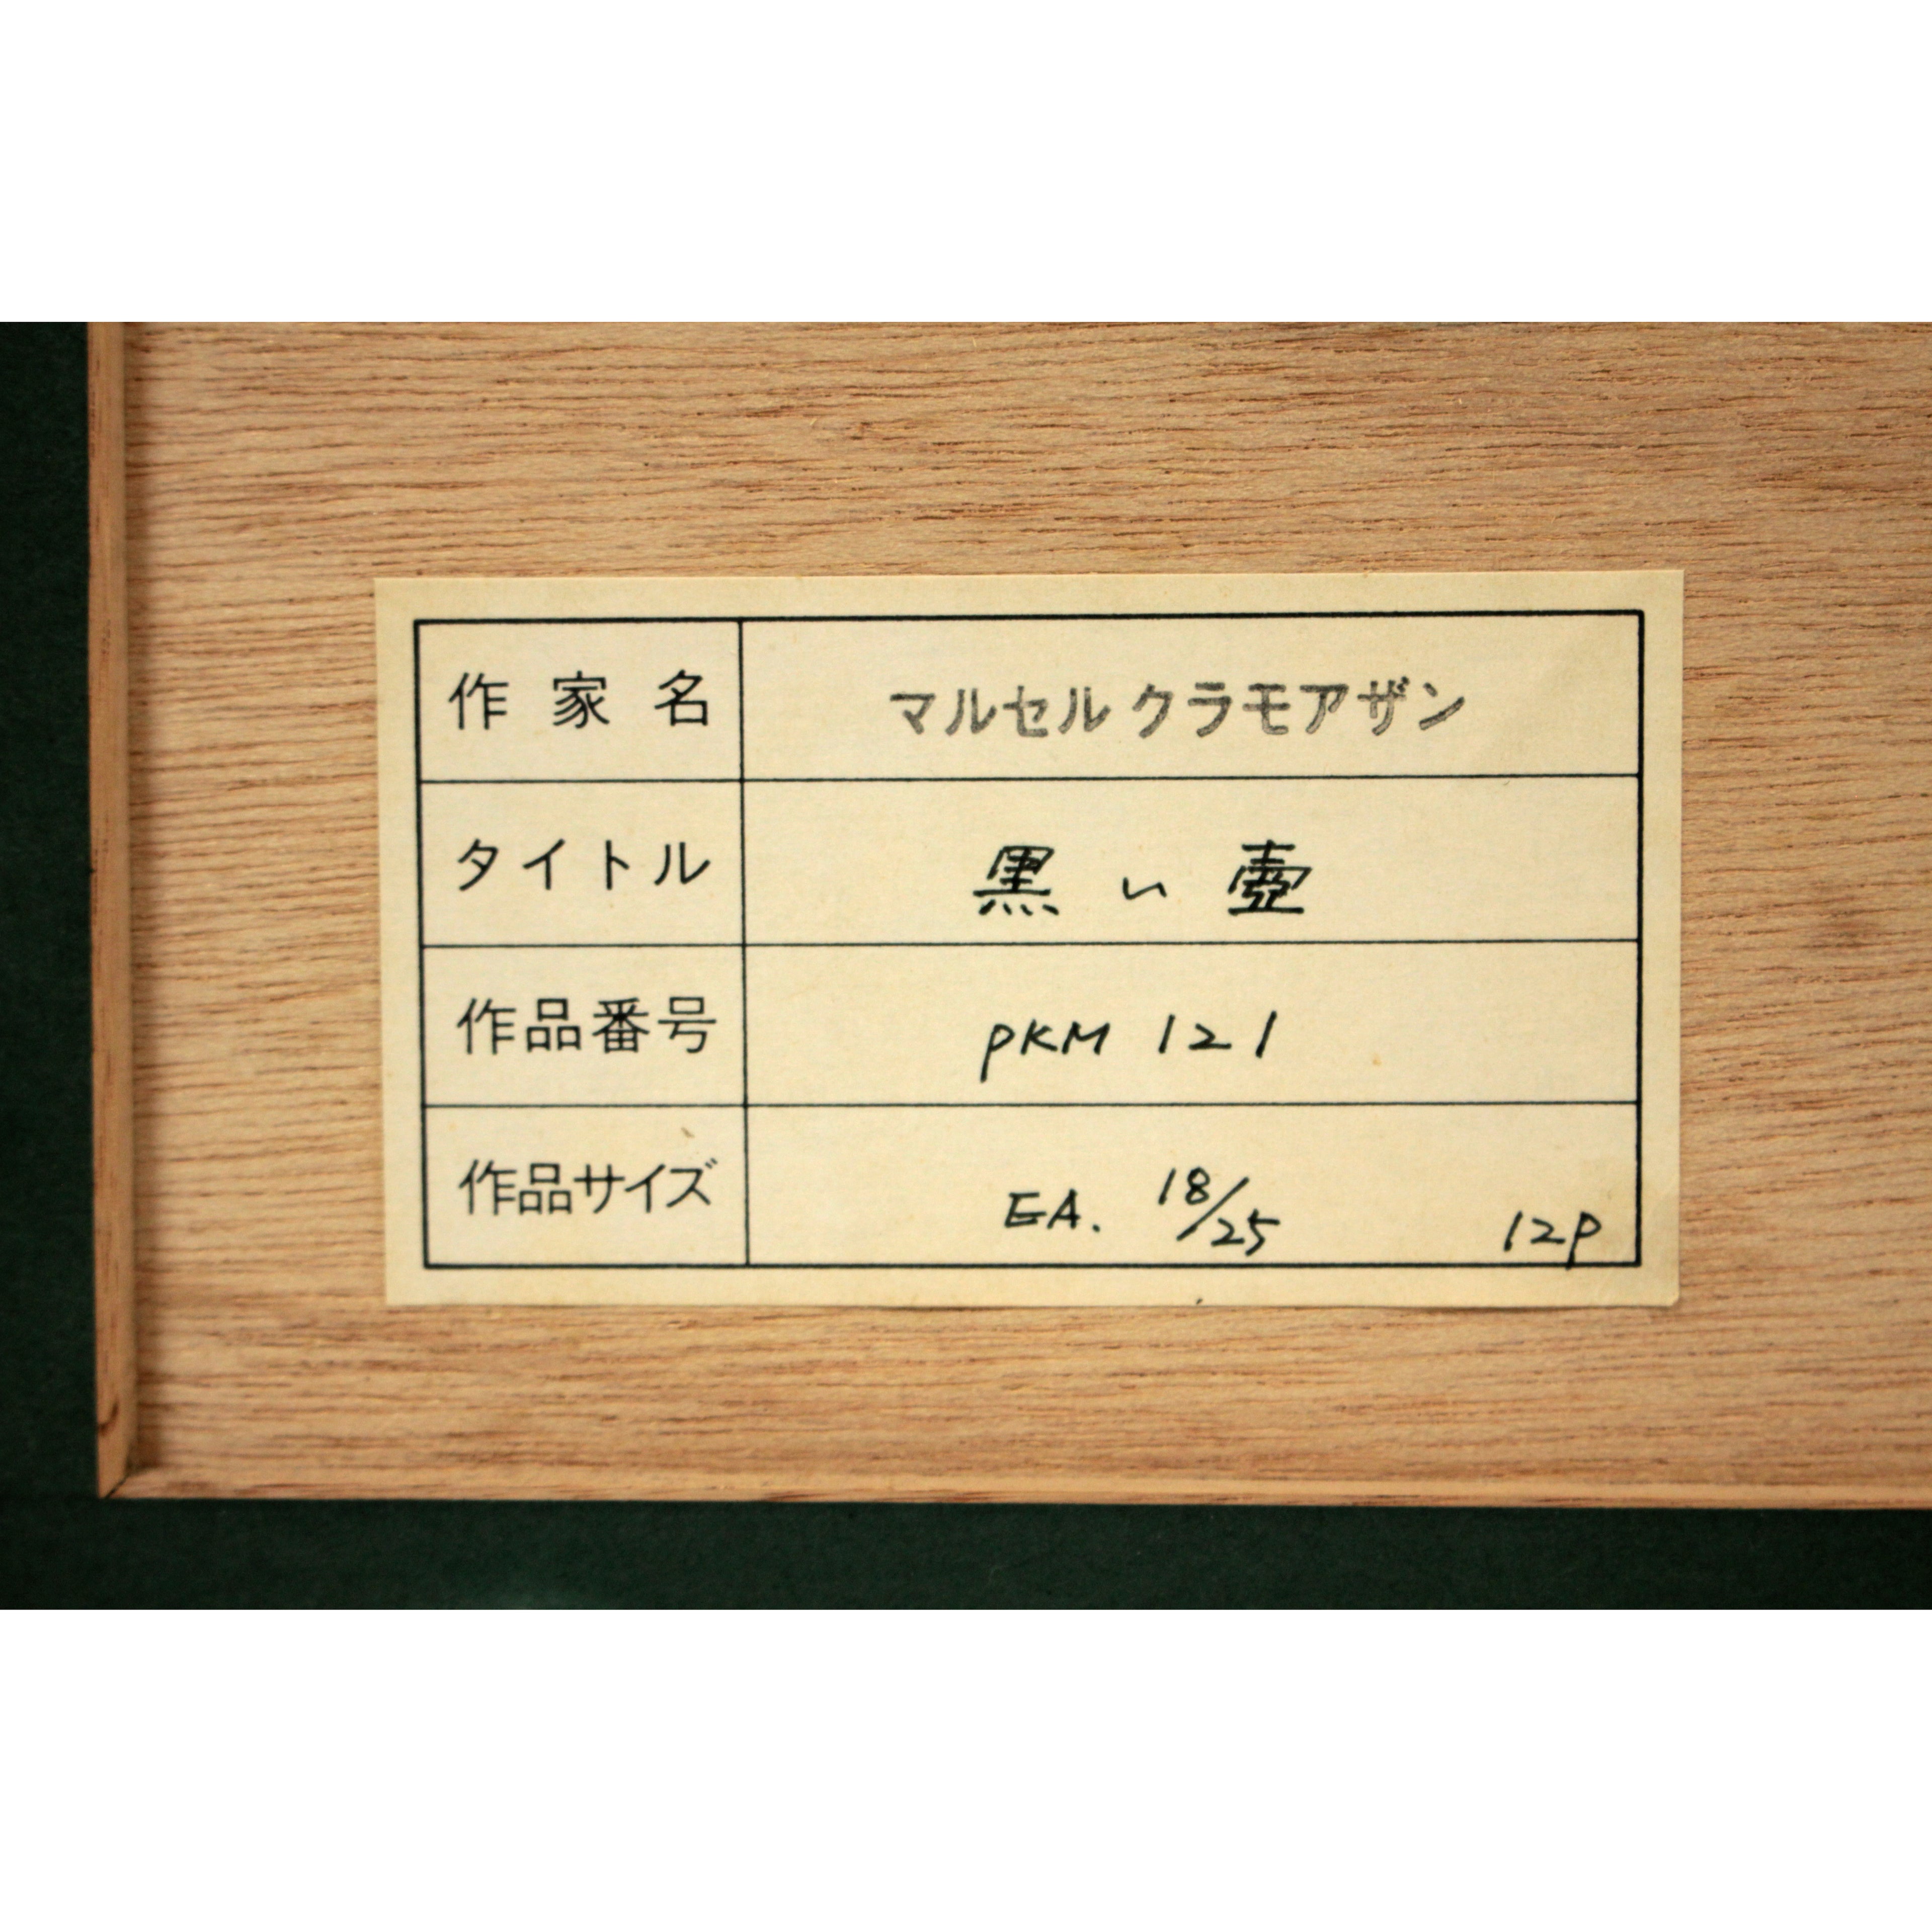 作家名 マルセル クラモアザン
タイトル 黒い壺
作品番号 PKM 121
作品サイズ EA. 18/25 12P